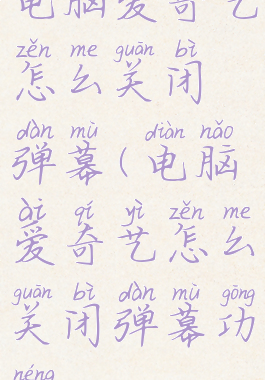 电脑爱奇艺
zěn me guān bì
怎么关闭
dàn mù diàn nǎo
弹幕(电脑
ài qí yì zěn me
爱奇艺怎么
guān bì dàn mù gōng
关闭弹幕功
néng